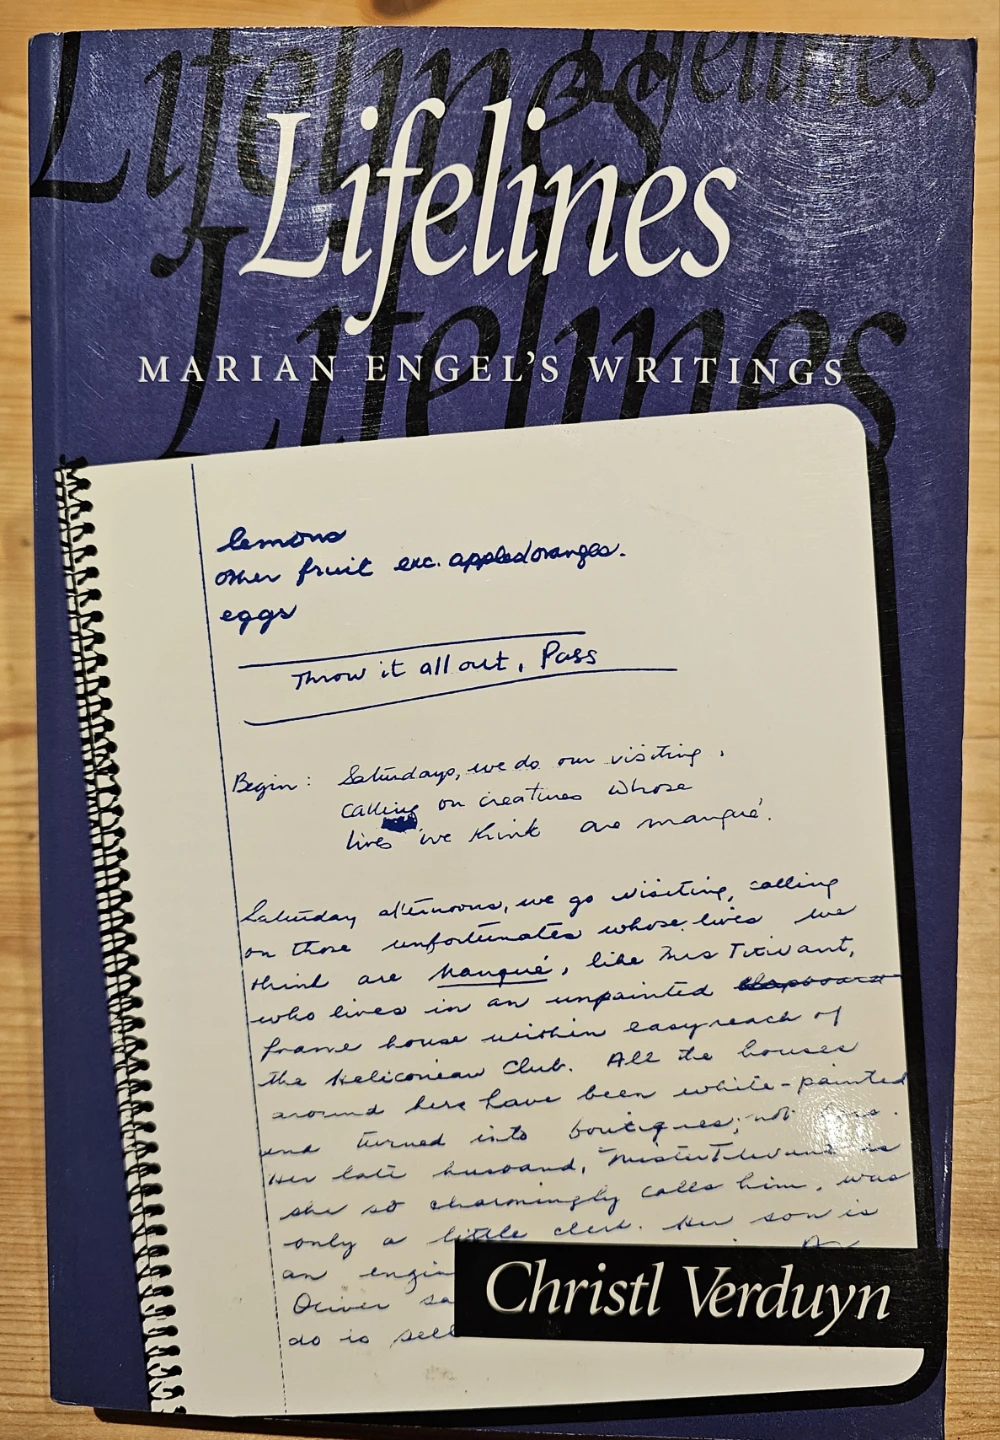 Lifelines Lifelines
Lifelines
Lifelines
MARIAN ENGEL'S WRITINGS
lemons
other fruit exc. apples/oranges.
eggs
Throw it all out, Pass
Begin: Saturdays, we do our visiting,
calling on creatures whose
lives we think are manqué.
Saturday afternoons, we go visiting, calling
on those unfortunates whose lives we
think are manqué, like Mrs
who lives in an unpainted clapboard
frame house within easy reach of
the Heliconian Club. All the houses
around here have been white-painted
and turned into boutiques; not hers.
Her late husband, "Mister as
she so charmingly calls him, was
only a little clerk. Her son is
an engi
Oliver sa
do is sell
Christl Verduyn